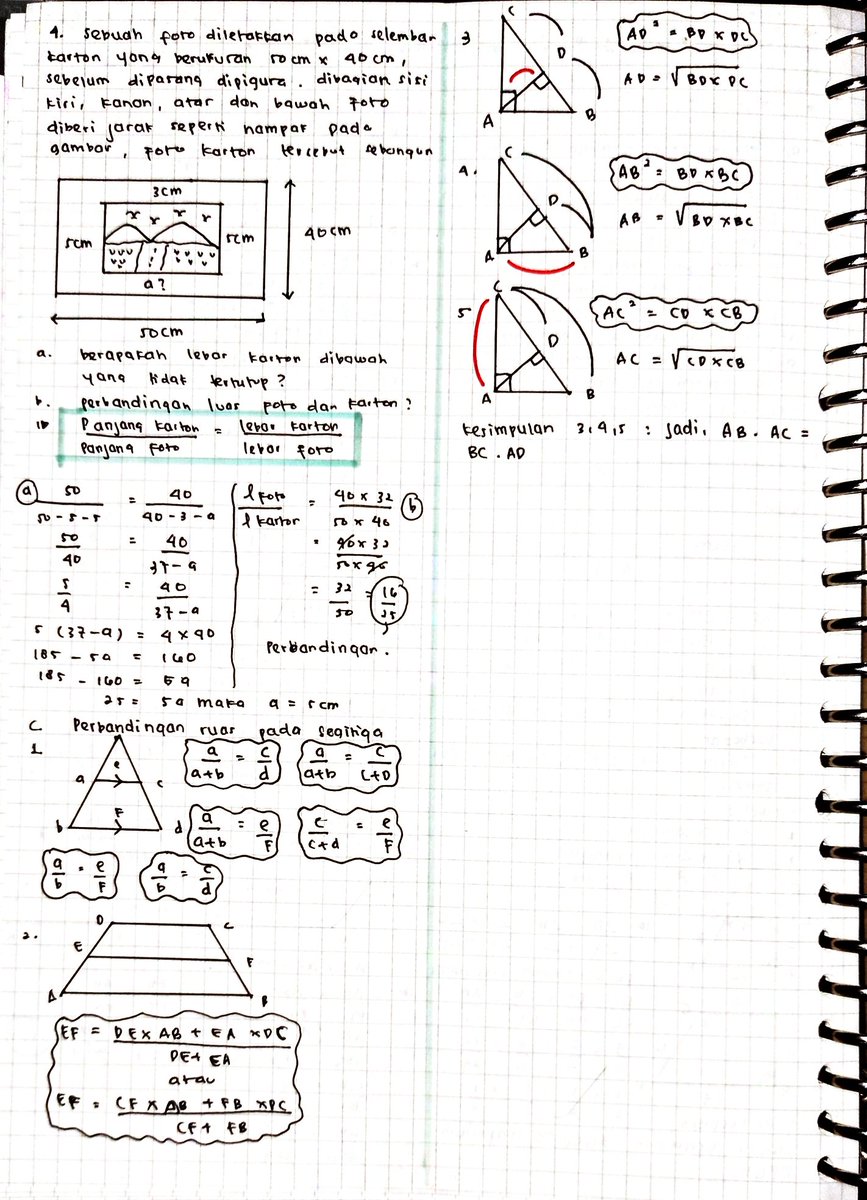 4. Sebuah foto diletakkan pada selembar
karton yang berukuran 50cm x 40cm,
sebelum dipasang dipigura. dibagian sisi
kiri, kanan, atas dan bawah foto
diberi jarak seperti nampak pada
gambar, foto karton tersebut sebangun
3cm
5cm
5cm
a?
40cm
50cm
a. berapakah lebar karton dibawah
yang tidak tertutup?
b. perbandingan luas foto dan karton?
Panjang karton = lebar karton
panjang foto lebar foto
a 50 = 40
50-5-5 40-3-a
50 = 40
40 37-a
5 = 40
4 37-a
5 (37-a) = 4x40
185 - 5a = 160
185 - 160 = 5a
25 = 5a maka a = 5cm
l foto = 40 x 32 b
l karton 50 x 40
= 40 x 32
50 x 40
= 32 = 16
50 25
Perbandingan.
C Perbandingan ruas pada segitiga
1
e
a c
F
b d
a = c
a+b d
a = c
a+b c+D
a = e
a+b F
c = e
c+d F
a = e
b F
a = c
b d
2.
D C
E F
A B
EF = DE x AB + EA x DC
DE + EA
atau
EF = CF x AB + FB x DC
CF + FB
3
C
D
A B
AD² = BD x DC
AD = √BD x DC
4.
C
D
A B
AB² = BD x BC
AB = √BD x BC
5
C
D
A B
AC² = CD x CB
AC = √CD x CB
Kesimpulan 3,4,5 : Jadi, AB . AC =
BC . AD